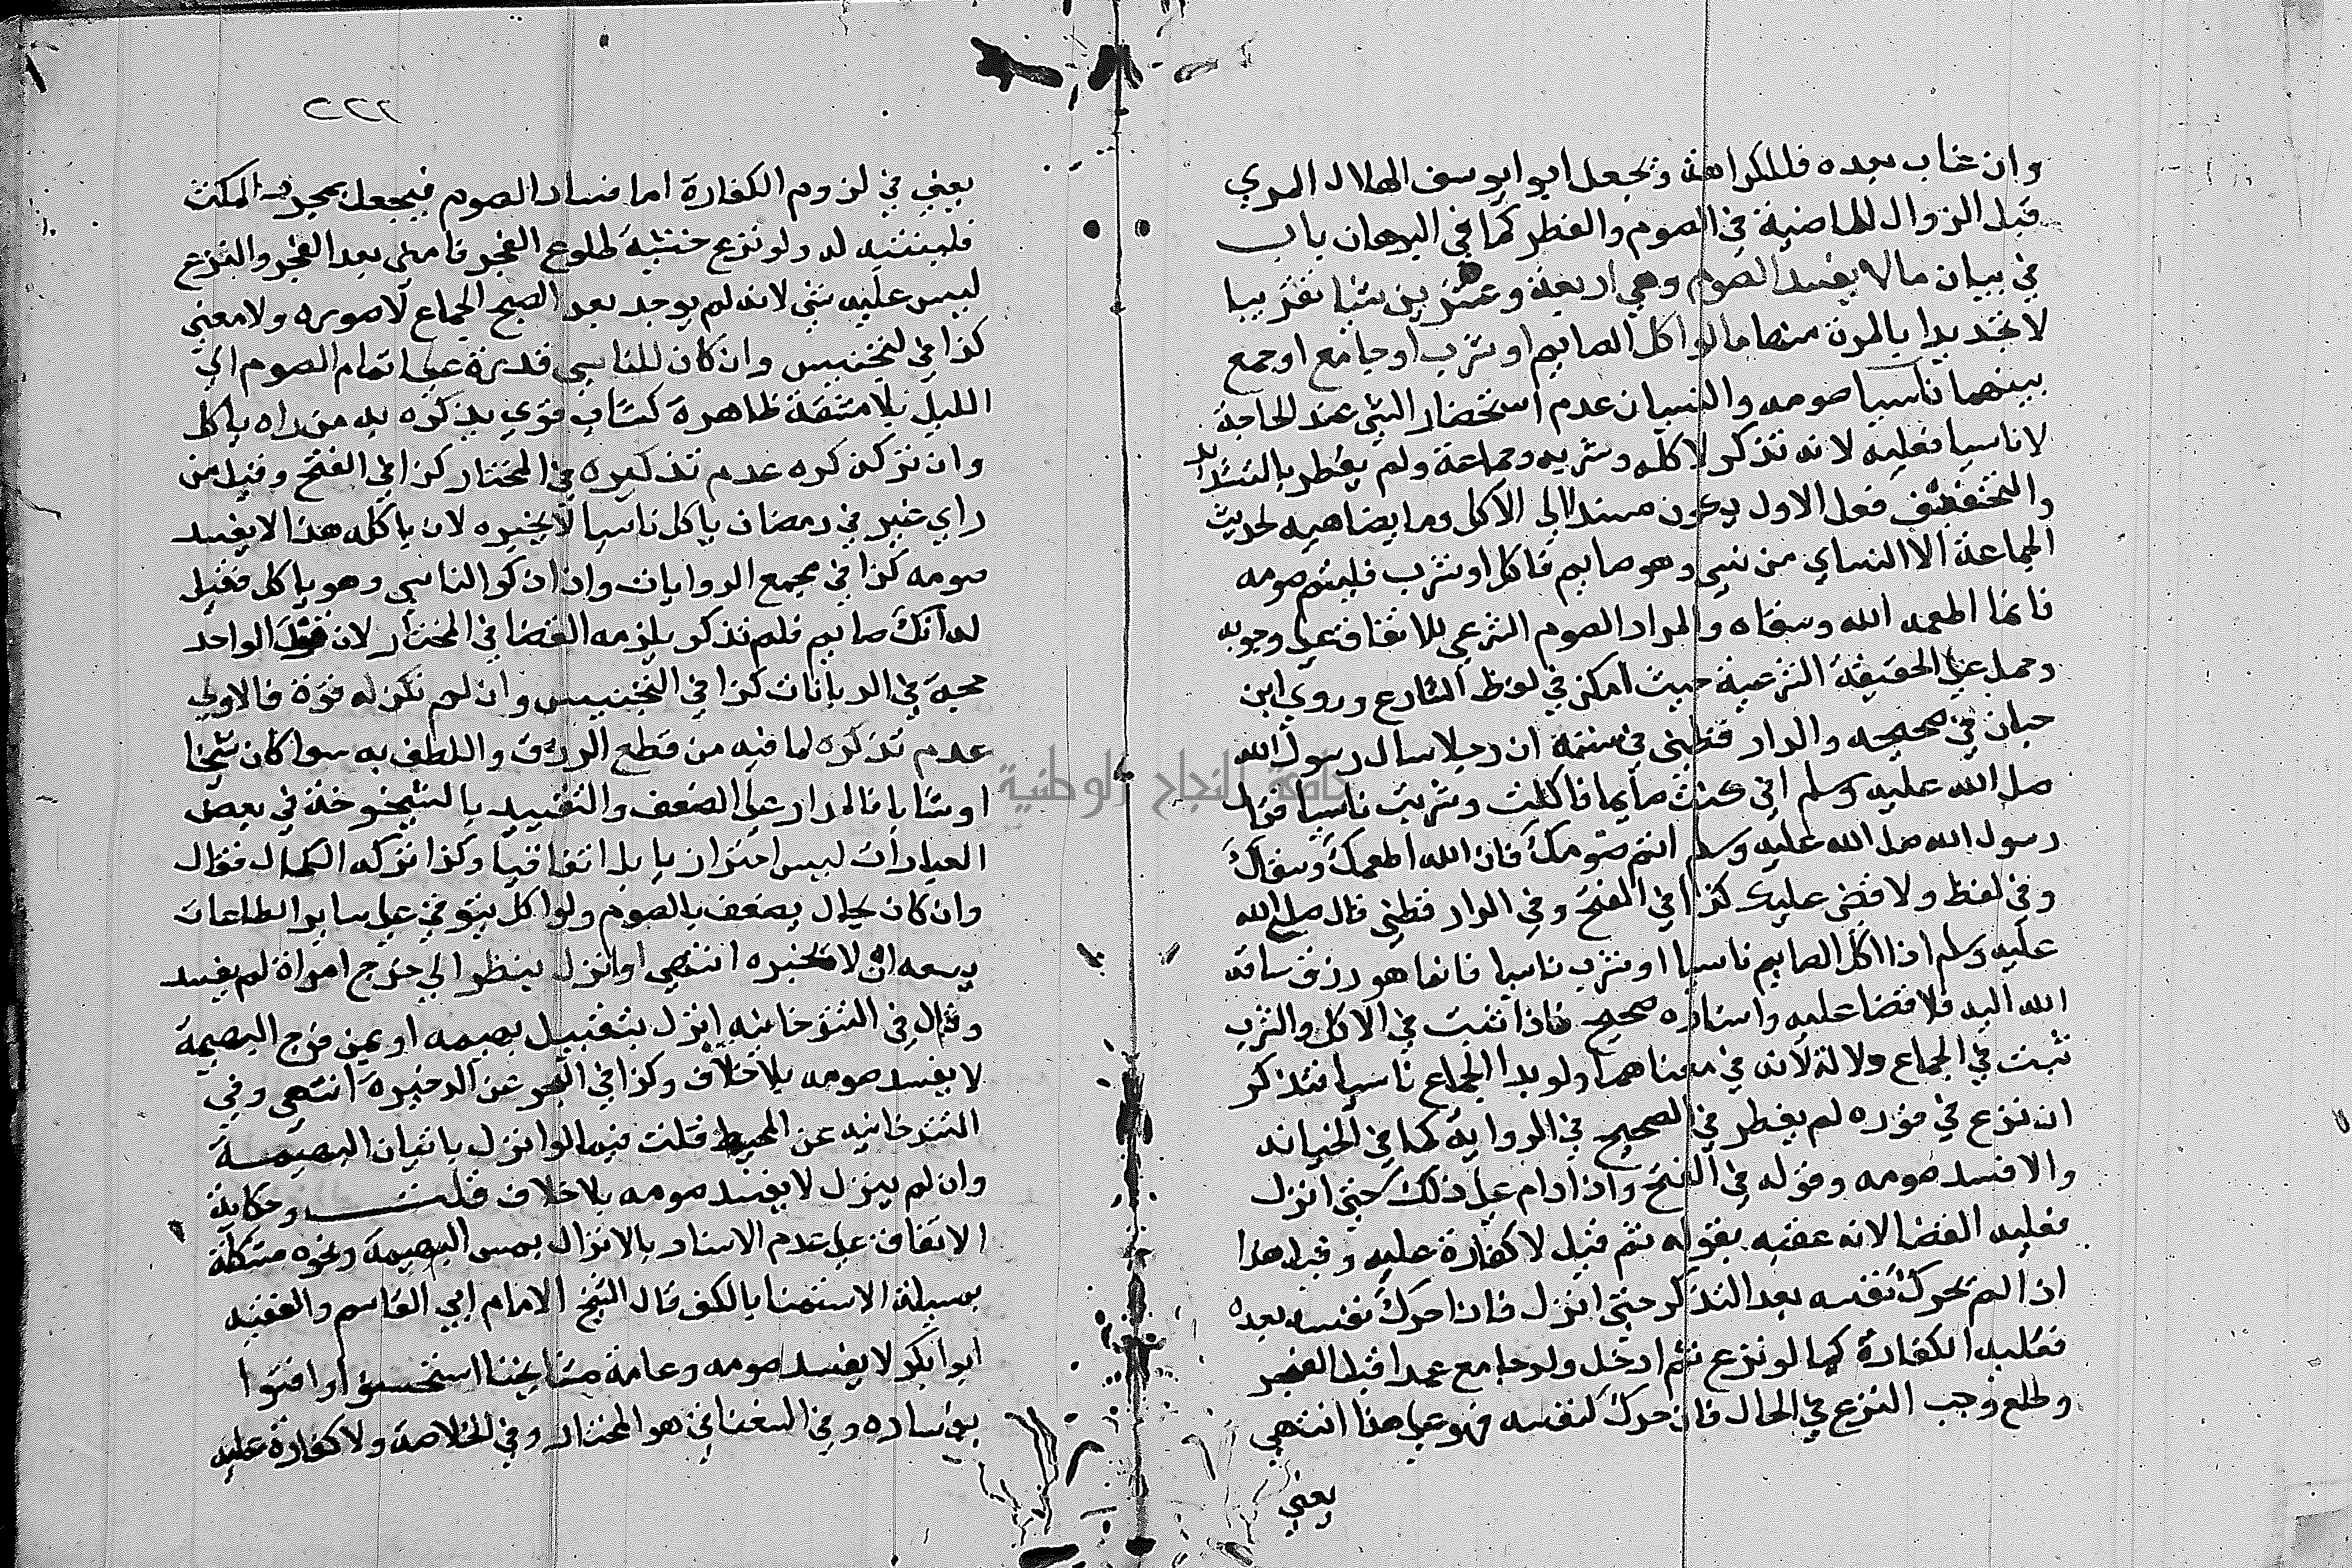 وان غاب بعده فللكراهة ويجعل ابو ايوسف الهلال المري
قبل الزوال للماضية في الصوم والفطر كما في البرهان باب
في بيان ما لا يفسد الصوم وهي اربعة وعشرين شيا تقريبا
لا تحديدا بالمرة منها ما لو اكل الصايم او شرب او جامع او جمع
بينهما ناسيا صومه والنسيان عدم استحضار الشي عند لحاجة
لا ناسيا فعليه لانه تذكر لاكله وشربه وجماعة ولم يفطر بالتشديد
والتخفيف فعل الاول يكون مسندا الى الاكل وما يضاهيه لحديث
الجماعة الا النساي من نسي وهو صايم فاكل او شرب فليتم صومه
فانما اطعمه الله وسقاه والمراد الصوم الشرعي للاتفاق على وجوبه
وحمل على الحقيقة الشرعية حيث امكن في لفظ الشارع وروى ابن
حبان في صحيحه والدار قطني في سننه ان رجلا سال رسول الله
صلى الله عليه وسلم اني كنت صايما فاكلت وشربت ناسيا فقال
رسول الله صلى الله عليه وسلم اتم صومك فان الله اطعمك وسقاك
وفي لفظ ولا قضى عليك كذا في الفتح وفي الدار قطني قال صلى الله
عليه وسلم اذا اكل الصايم ناسيا او شرب ناسيا فانما هو رزق ساقه
الله اليه فلا قضا عليه واسناده صحيح فاذا ثبت في الاكل والشرب
ثبت في الجماع دلالة لانه في معناهما ولو بدا الجماع ناسيا فتذكر
ان نزع في فوره لم يفطر في الصحيح في الرواية كما في الخيانه
والا فسد صومه وقوله في الفتح واذا دام على ذلك حتى انزل
فعليه القضا لانه عقبه بقوله ثم قيل لا كفارة عليه وقيل هذا
اذا لم تحرك نفسه بعد التذكر حتى انزل فاذا حرك نفسه بعده
فعليه الكفارة كما لو نزع ثم ادخل ولو جامع عمدا قبل الفجر
وطلع وجب النزع في الحال فان حرك لنفسه فهو على هذا انتهى
يعني
٢٢٢
يعني في لزوم الكفارة اما فساد الصوم فيجعل بمجرد المكث
فليتنبه له ولو نزع خشية طلوع الفجر فامنى بعد الفجر والنزع
ليس عليه شي لانه لم يوجد بعد الصبح الجماع لا صوره ولا معنى
كذا في لتجنيس وان كان للناسي قدرة على اتمام الصوم الى
الليل بلا مشقة ظاهرة كشاب قوي يذكره به من راه ياكل
وان تركه كره عدم تذكيره في المختار كذا في الفتح وقيل من
راي غير في رمضان ياكل ناسيا لا يخبره لان ياكله هذا لا يفسد
صومه كذا في مجمع الروايات واذا ذكر الناسي وهو ياكل فقيل
له انك صايم فلم تذكر يلزمه القضا في المختار لان قول الواحد
حجة في الديانات كذا في التجنيس وان لم تكن له قوة فالاولى
عدم تذكره لما فيه من قطع الرزق واللطف به سوا كان شيخا
او شابا فالمدار على الضعف والتقييد بالشيخوخة في بعض
العبارات ليس احترازيا بل اتفاقيا وكذا تركه الكمال فقال
وان كان بحال يضعف بالصوم ولو اكل يتوقي على ساير الطاعات
يسعه ان لا يخبره انتهى او انزل بنظر الى فرج امراة لم يفسد
وقال في التترخانيه انزل بتقبيل بهيمه او بمس فرج البهيمة
لا يفسد صومه بلا خلاف وكذا في البحر عن الدخيرة انتهى وفي
التترخانيه عن المحيط قلت فيما لو انزل باتيان البهيمة
وان لم ينزل لا يفسد صومه بلا خلاف قلت وحكاية
الاتفاق على عدم الافساد بالانزال بمس البهيمة ونحوه مشكلة
بمسيلة الاستمنا بالكف قال الشيخ الامام ابي القاسم والفقيه
ابو ابكر لا يفسد صومه وعامة مشايخنا استحسنوا وافتوا
بفساده وفي السغناقي هو المختار وفي الخلاصة ولا كفارة عليه
جامعة النجاح الوطنية